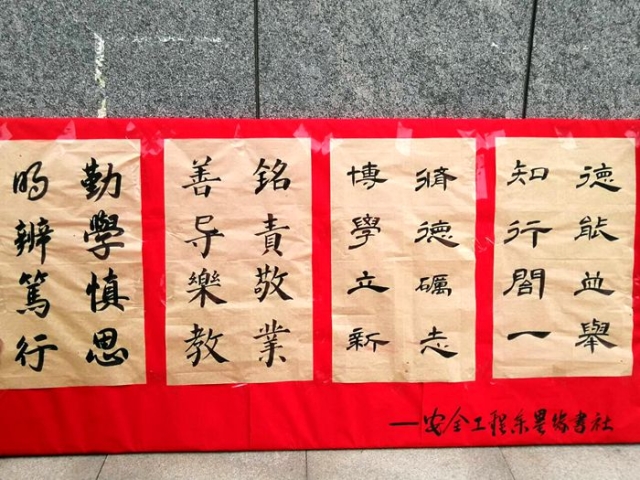 德能並舉
知行閤一
脩德礪志
博學立新
銘責敬業
善导樂教
勤學慎思
明辨篤行
—安全工程系墨缘書社